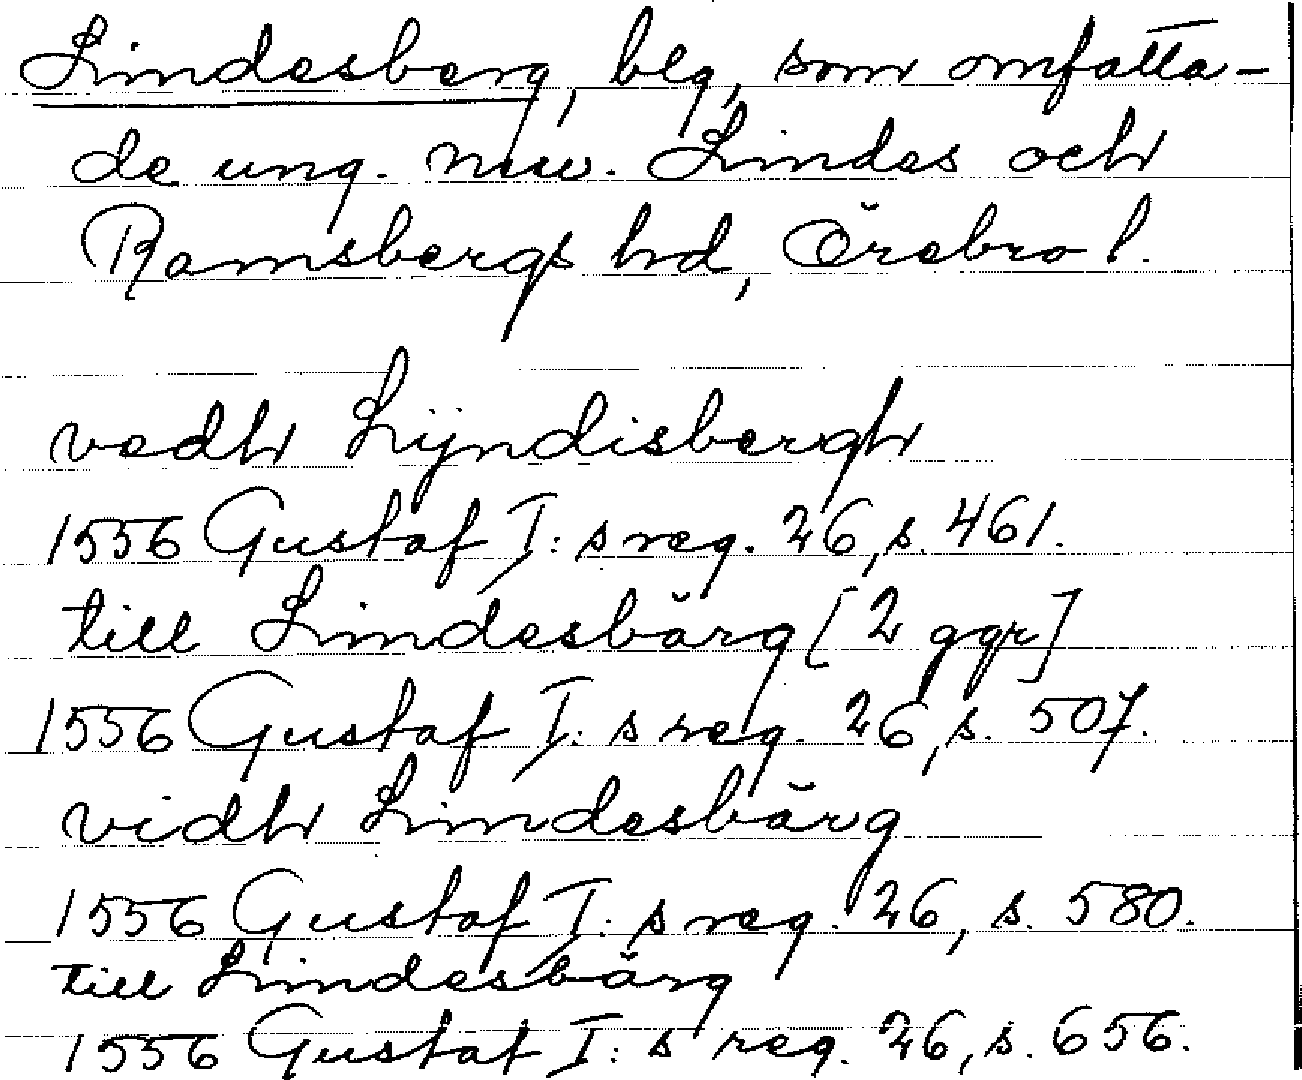 Lindesberg, blg, som omfatta-
de ung. nuv. Lindes och
Ramsbergs hd, Örebro l.
vedh Lÿndisbergh
1556 Gustaf I:s reg. 26, s. 461.
till Lindesbärg [2 ggr]
1556 Gustaf I:s reg. 26, s. 507.
vidh Lindesbärg
1556 Gustaf I:s reg. 26, s. 580.
till Lindesbärg
1556 Gustaf I:s reg. 26, s. 656.